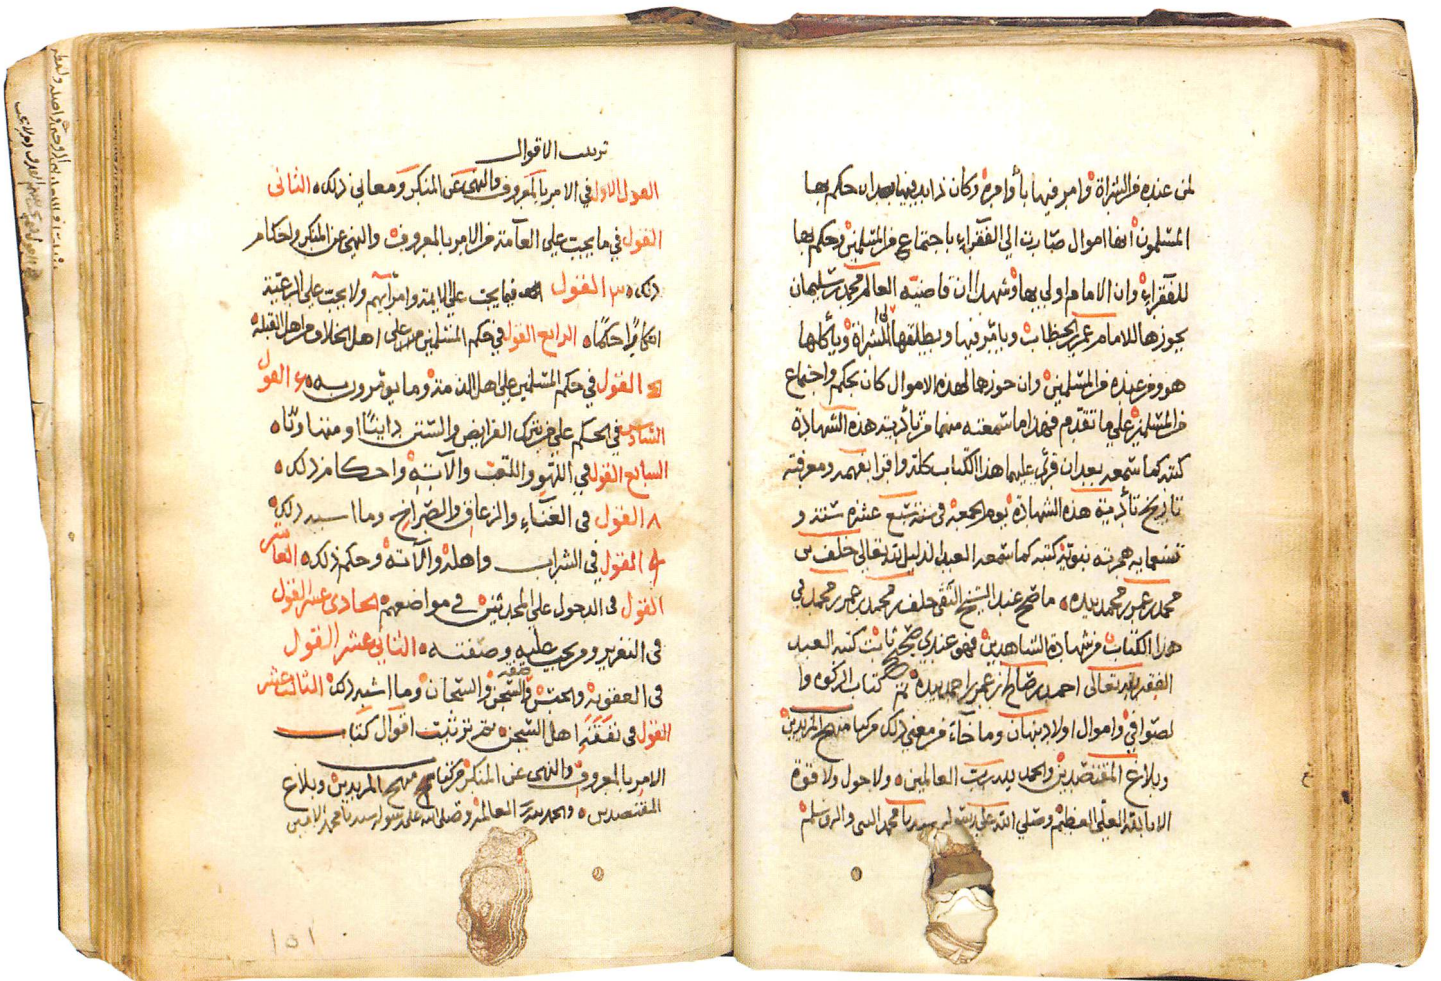 لمن عنده من الشراة وامر فيها بأوامره وكان ذلك فيها بعد ان حكم بها
المسلمون انها اموال صارت الى الفقراء باجتماع من المسلمين وحكم بها
للفقراء وان الامام اولى بها وشهدا ان قاضيه العالم محمد بن سليمان
يحوزها للامام عمر بن الخطاب ويأمر فيها ويطلقها للشراة ويأكلها
هو ومن عنده من المسلمين وان حوزهما لهذه الاموال كان بحكم واجتماع
من المسلمين على ما تقدم فهذا ما سمعته منهما من تأدية هذه الشهادة
كتبه كما سمعه بعد ان قرئ عليهما هذا الكتاب كله واقرا بفهمه ومعرفته
تاريخ تأدية هذه الشهادة يوم الجمعة في سنة سبع عشرة سنة و
تسعمايه هجرية نبوية كتبه كما سمعه العبد الذليل لله تعالى خلف بن
محمد بن عمر بن محمد بيده ما صح عند الشيخ التقي خلف بن محمد بن عمر بن محمد في
هذا الكتاب من شهادة الشاهدين فهو عندي صحيح ثابت كتبه العبد
الفقير لله تعالى احمد بن صالح بن عمر بن احمد بيده تم كتاب الزكوة وا
لصوافي واموال اولاد نبهان وما جاء من معنى ذلك من كتاب منهج المريدين
وبلاغ المقتصدين والحمد لله رب العالمين ولا حول ولا قوة
الا بالله العلي العظيم وصلى الله على رسوله سيدنا محمد النبي واله وسلم
ترتيب الاقوال
القول الاول في الامر بالمعروف والنهي عن المنكر ومعاني ذلك الثاني
القول في ما يجب على العآمة من الامر بالمعروف والنهي عن المنكر واحكام
ذلك ٣ القول فيما يجب على الايمة وامرآيهم ولا يجب على الرعية
احكامًا الرابع القول في حكم المسلمين على اهل الخلاف من اهل القبلة
القول في حكم المسلمين على اهل الذمة وما يؤمرون به ٦ القول
السادس في الحكم على من ترك الفرايض والسنن داينًا او متهاونًا
السابع القول في اللهو واللعب والآته واحكام ذلك
٨ القول في الغناء والزعاق والصراخ وما اشبه ذلك
٩ القول في الشراب واهله والآته وحكم ذلك العاشر
القول في الدخول على المحدثين في مواضعهم الحادي عشر القول
في التعزير ومن يجب عليه وصفته الثاني عشر القول
في العقوبة والحبس وصفة السجن والسجان وما اشبه ذلك الثالث عشر
القول في نفقة اهل السجن تم ترتيب اقوال كتاب
الامر بالمعروف والنهي عن المنكر من كتاب منهج المريدين وبلاغ
المقتصدين والحمد لله رب العالمين وصلى الله على رسوله سيدنا محمد الامين
١٥١